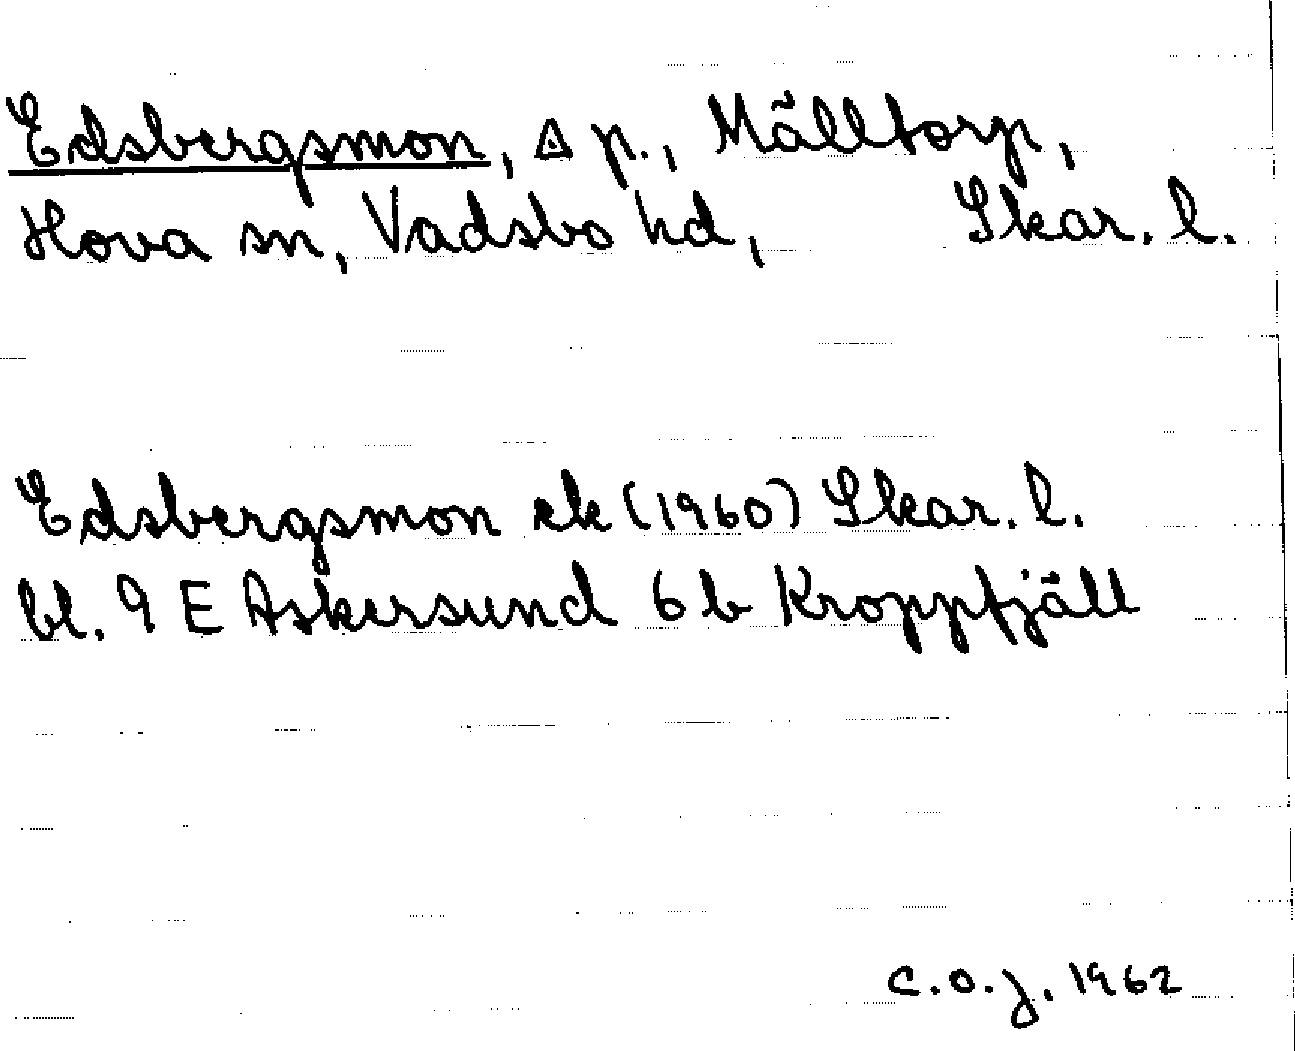 Edsbergsmon, △ p., Mälltorp,
Hova sn, Vadsbo hd, Skar. l.
Edsbergsmon ek (1960) Skar. l.
bl. 9 E Askersund 6 b Kroppfjäll
C.O.J. 1962